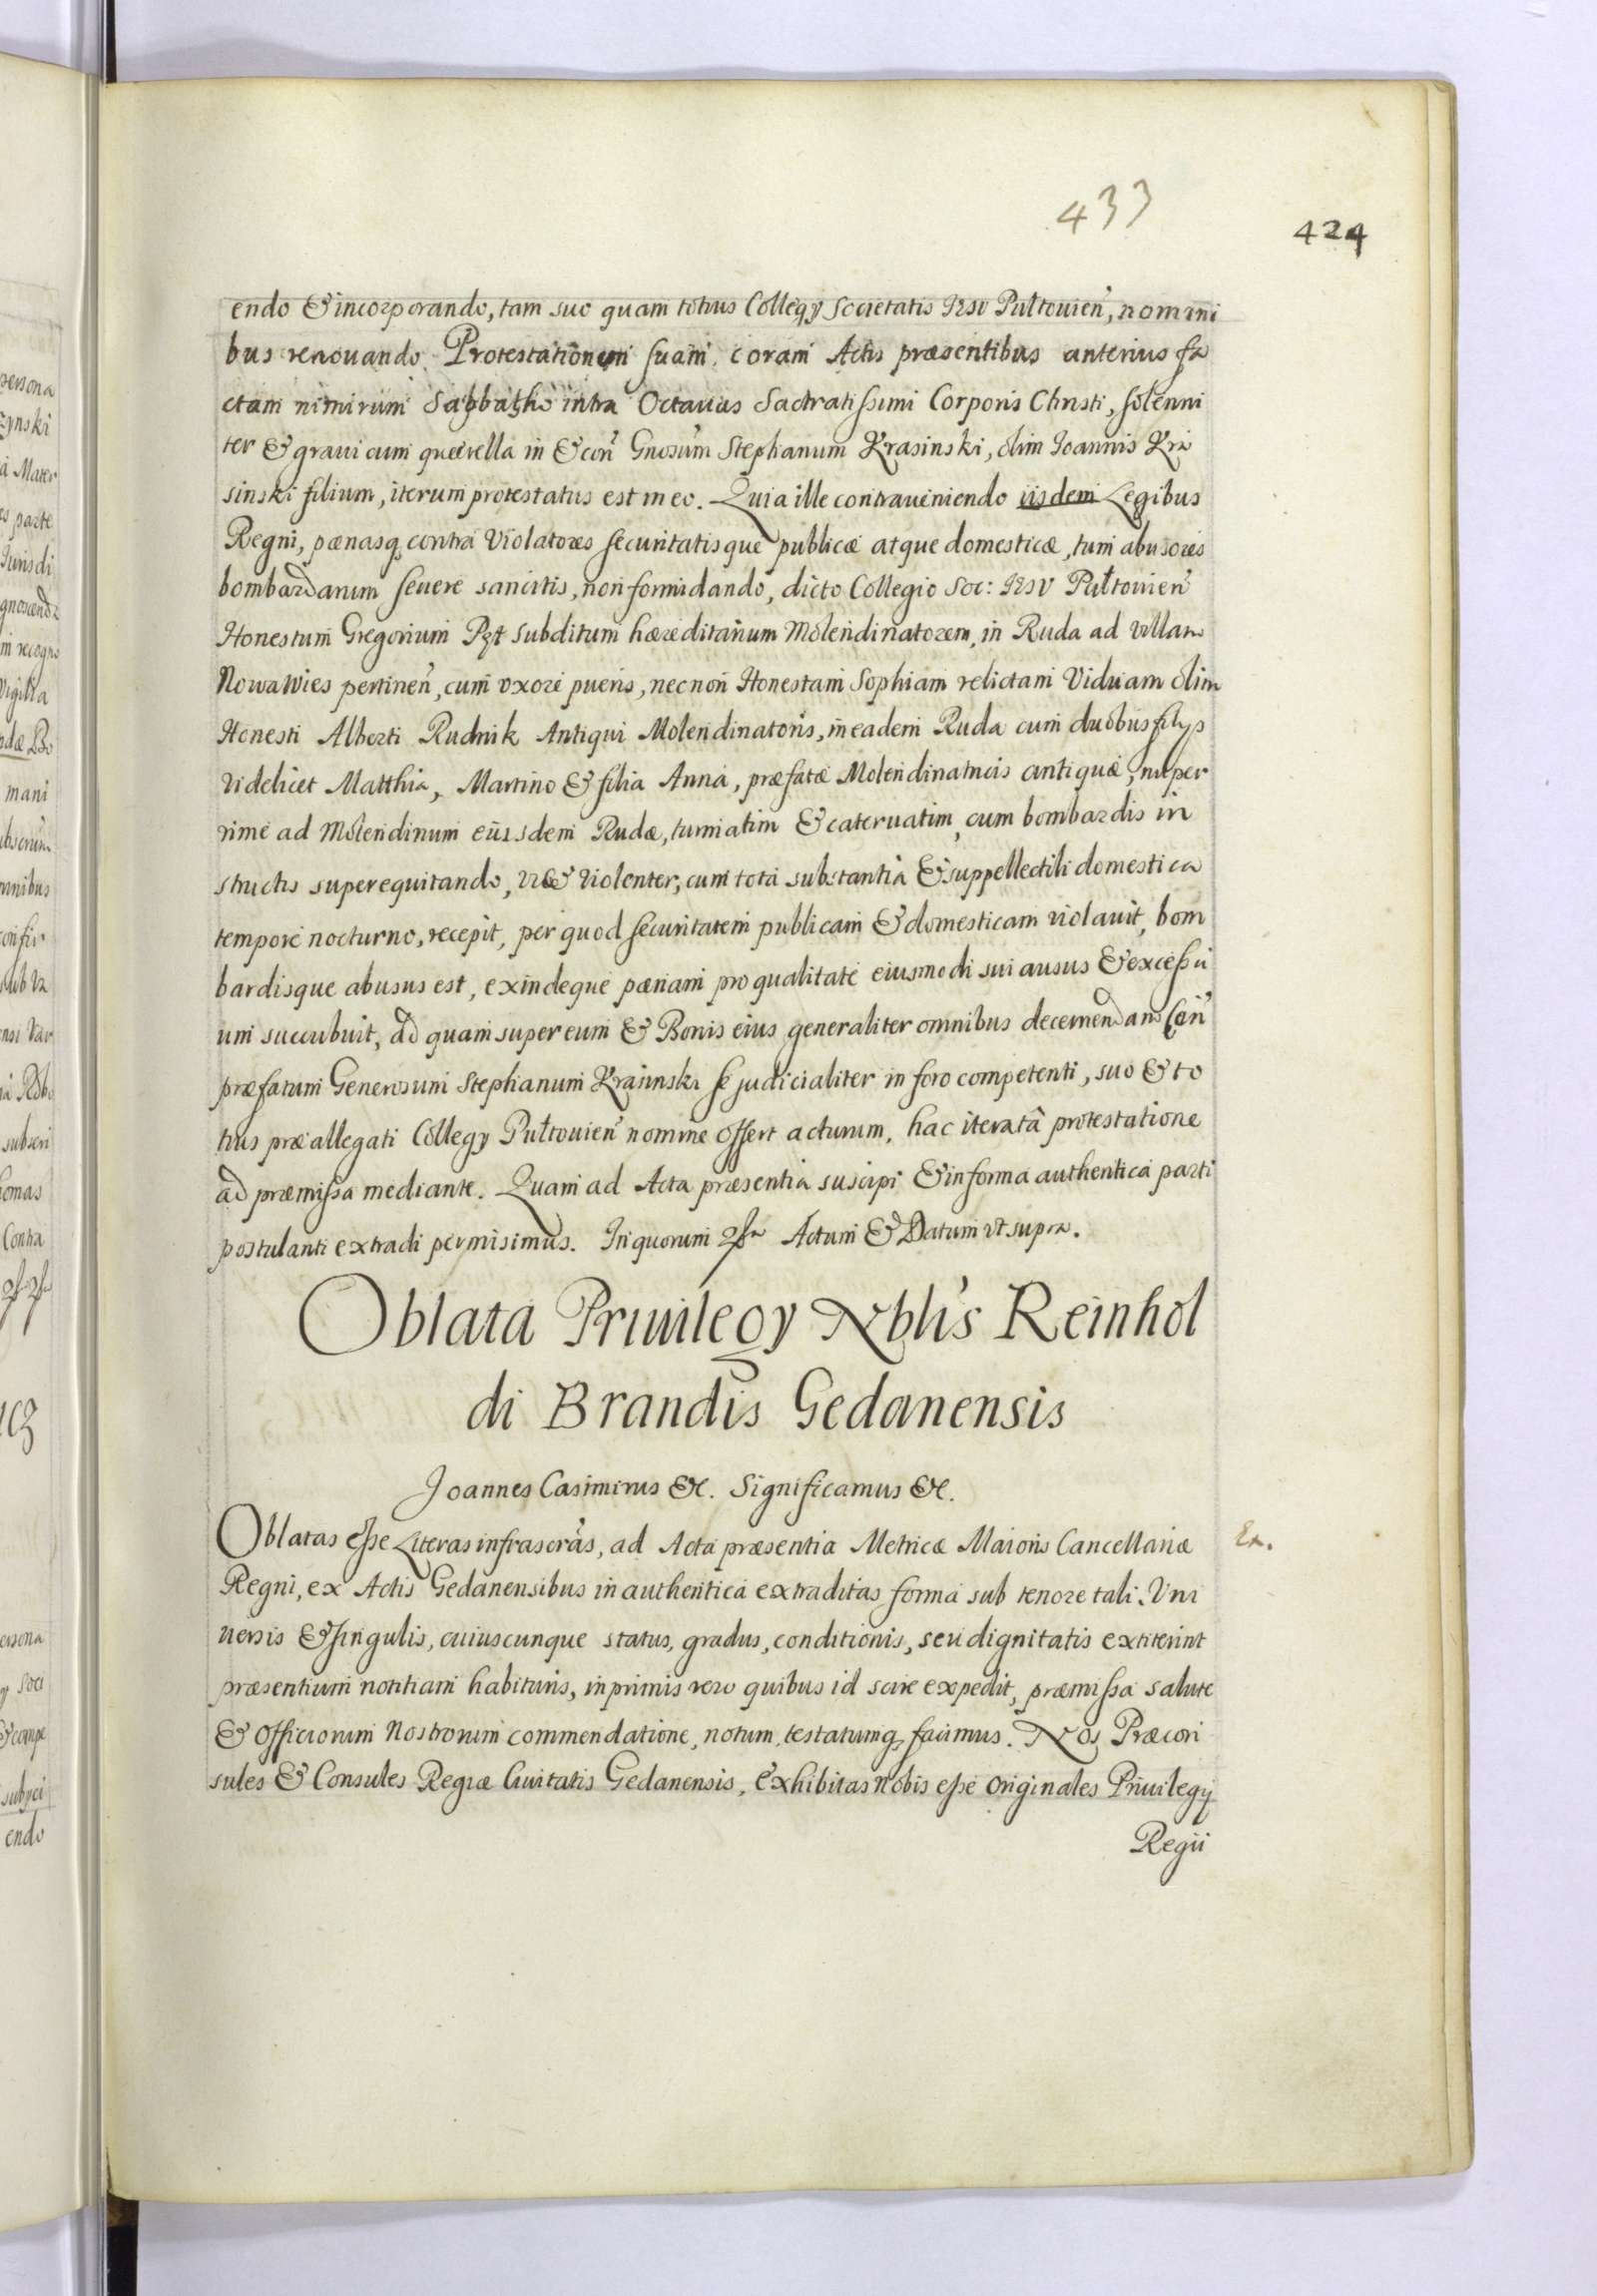 433
424
endo & incorporando, tam suo quam totius Collegy Societatis Iesv Pułtouien̄, nomini
bus renouando. Protestationem suam coram Actis præsentibus anterius fa
ctam nimirum Sabbatho intra Octauas Sacratissimi Corporis Christi, solenni
ter & graui cum querella in & con̄ Gnosum Stephanum Krasinski, olim Ioannis Kra
sinski filium, iterum protestatus est in eo. Quia ille contraueniendo iisdem Legibus
Regni, pænasq, contra Violatores securitatisque publicæ atque domesticæ, tum abusores
bombardarum seuere sancitis, non formidando, dicto Collegio Soc: Iesv Pułtouien̄
Honestum Gregorium Pzt subditum hæreditarium Molendinatorem, in Ruda ad villam
Nowawies pertinen̄, cum vxore pueris, necnon Honestam Sophiam relictam Viduam olim
Honesti Alberti Rudnik Antiqui Molendinatoris, in eadem Ruda cum duobus filys
videlicet Matthia, Martino & filia Anna, præfatæ Molendinatricis antiquæ, nuper
rime ad Molendinum eiusdem Rudæ, turmatim & cateruatim, cum bombardis in
structis superequitando, vi & violenter, cum tota substantia & suppellectili domestica
tempore nocturno, recepit, per quod securitatem publicam & domesticam violauit, bom
bardisque abusus est, exindeque pænam pro qualitate eiusmodi sui ausus & excessu
um succubuit, ad quam super eum & Bonis eius generaliter omnibus decernendam Con̄
præfatum Generosum Stephanum Krasinski se judicialiter in foro competenti, suo & to
tius præallegati Collegy Pułtouien̄ nomine offert acturum, hac iteratâ protestatione
ad præmissa mediante. Quam ad Acta præsentia suscipi & in forma authentica parti
postulanti extradi permisimus. In quorum Actum & Datum vt supra.
Oblata Priuilegy Nblis Reinhol
di Brandis Gedanensis
Joannes Casimirus &c. Significamus &c.
Oblatas esse Literas infrascras, ad Acta præsentia Metricæ Maioris Cancellariæ
Ex.
Regni, ex Actis Gedanensibus in authentica extraditas forma sub tenore tali. Vni
uersis & singulis, cuiuscunque status, gradus, conditionis, seu dignitatis extiterint
præsentium notitiam habituris, inprimis vero quibus id scire expedit, præmissa salute
& Officiorum Nostrorum commendatione, notum testatumq, facimus. Nos Præcon
sules & Consules Regiæ Ciuitatis Gedanensis, Exhibitas nobis esse originales Priuilegy
Regii